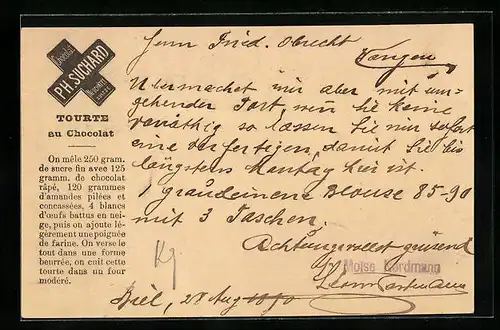 Chocolat
PH. SUCHARD
TOURTE
au Chocolat
On mêle 250 gram.
de sucre fin avec 125
gramm. de chocolat
râpé, 120 grammes
d'amandes pilées et
concassées, 4 blancs
d'œufs battus en nei-
ge, puis on ajoute lé-
gèrement une poignée
de farine. On verse le
tout dans une forme
beurrée, on cuit cette
tourte dans un four
modéré.
Herrn Fried. Obrecht
Wangen
Übermachet mir aber mit um-
gehender Post, wen Sie keine
vorräthig so lassen Sie mir sofort
eine verfertigen, damit Sie bis
längstens Montag hier ist.
1 grauleinene Blouse 85-90
mit 3 Taschen.
Achtungsvollst grüssend
Moïse Nordmann
Biel, 28 Aug 1890